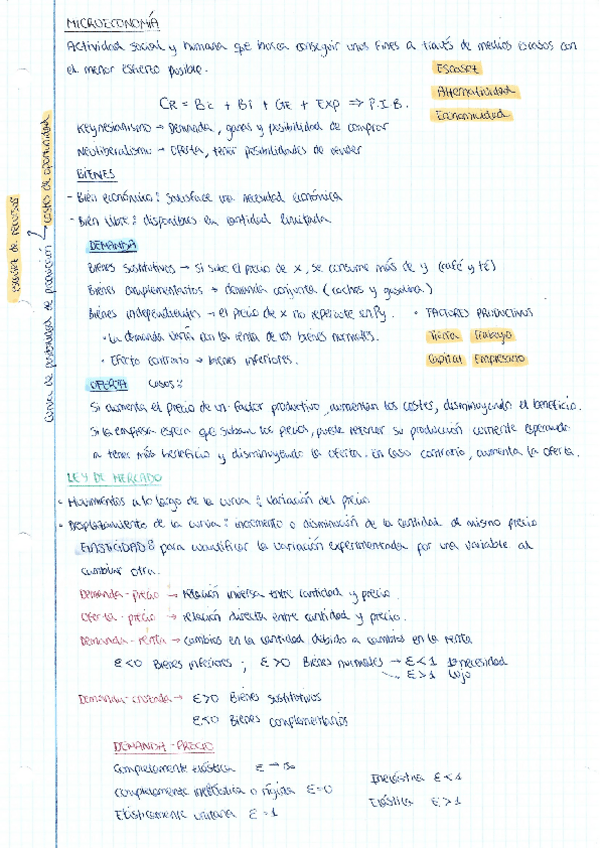 MICROECONOMÍA
Actividad social y humana que busca conseguir unos fines a través de medios escasos con
el menor esfuerzo posible.
Escasez
Alternatividad
Economicidad
CR = Bc + Bi + GE + Exp => P.I.B.
Keynesianismo → Demanda, ganas y posibilidad de comprar
Neoliberalismo → Oferta, tener posibilidades de vender
BIENES
- Bien económico: satisface una necesidad económica
- Bien libre: disponibles en cantidad ilimitada
escasez de recursos
Curva de posibilidad de producción
costes de oportunidad
DEMANDA
Bienes sustitutivos → si sube el precio de x, se consume más de y (café y té)
Bienes complementarios → demanda conjunta (coches y gasolina)
Bienes independientes → el precio de x no repercute en Py.
• La demanda varía con la renta de los bienes normales.
• Efecto contrario → bienes inferiores.
• FACTORES PRODUCTIVOS
Tierra Trabajo
Capital Empresario
OFERTA Casos:
Si aumenta el precio de un factor productivo, aumentan los costes, disminuyendo el beneficio.
Si la empresa espera que suban los precios, puede retener su producción corriente esperando
a tener más beneficio y disminuyendo la oferta. En caso contrario, aumenta la oferta.
LEY DE MERCADO
- Movimientos a lo largo de la curva: variación del precio
- Desplazamiento de la curva: incremento o disminución de la cantidad al mismo precio
ELASTICIDAD: para cuantificar la variación experimentada por una variable al
cambiar otra.
Demanda-precio → relación inversa entre cantidad y precio.
Oferta-precio → relación directa entre cantidad y precio.
Demanda-renta → cambios en la cantidad debido a cambios en la renta
ε<0 Bienes inferiores ; ε>0 Bienes normales → ε<1 1ª necesidad
ε>1 lujo
Demanda-cruzada → ε>0 Bienes sustitutivos
ε<0 Bienes complementarios
DEMANDA-PRECIO
Completamente elástica ε → ∞
Completamente inelástica o rígida ε=0
Elásticamente unitaria ε=1
Inelástica ε<1
Elástica ε>1